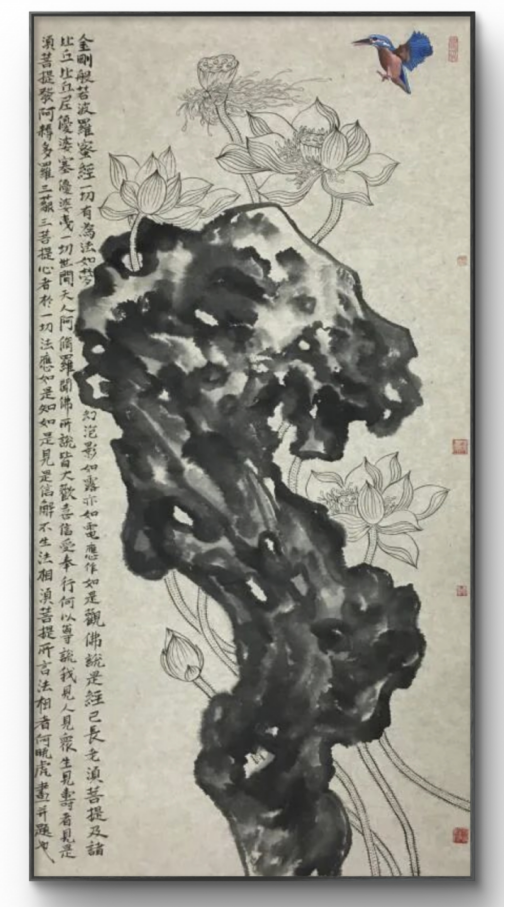 金剛般若波羅蜜經一切有為法如夢幻泡影如露亦如電應作如是觀佛說是經已長老須菩提及諸
比丘比丘尼優婆塞優婆夷一切世間天人阿脩羅聞佛所說皆大歡喜信受奉行何以等說我見人見衆生見壽者見是
須菩提發阿耨多羅三藐三菩提心者於一切法應如是知如是見是信解不生法相須菩提所言法相者何曉虎畫并題